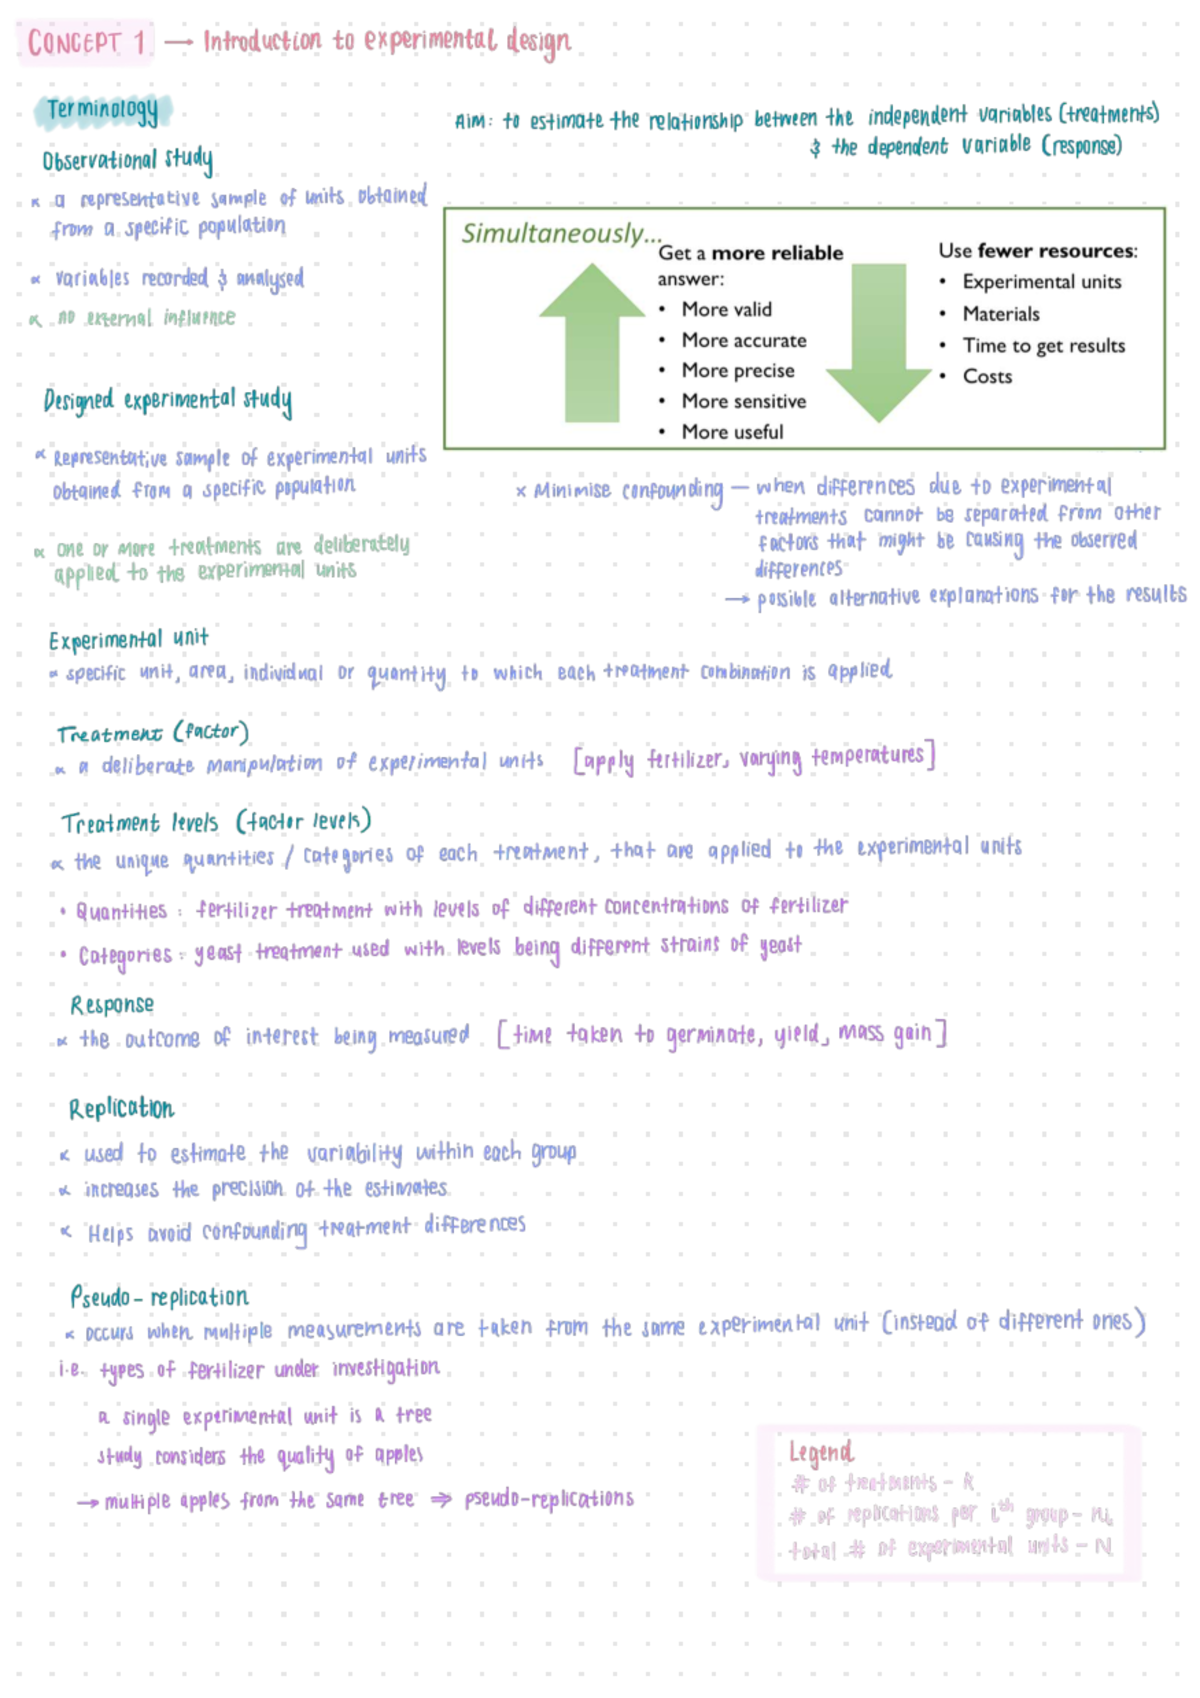 CONCEPT 1 → Introduction to experimental design
Terminology
Aim: to estimate the relationship between the independent variables (treatments)
& the dependent variable (response)
Observational study
∝ a representative sample of units obtained
from a specific population
∝ variables recorded & analysed
∝ no external influence
Simultaneously...
Get a more reliable
answer:
• More valid
• More accurate
• More precise
• More sensitive
• More useful
Use fewer resources:
• Experimental units
• Materials
• Time to get results
• Costs
Designed experimental study
∝ Representative sample of experimental units
obtained from a specific population
∝ one or more treatments are deliberately
applied to the experimental units
× Minimise confounding — when differences due to experimental
treatments cannot be separated from other
factors that might be causing the observed
differences
→ possible alternative explanations for the results
Experimental unit
∝ specific unit, area, individual or quantity to which each treatment combination is applied
Treatment (factor)
∝ a deliberate manipulation of experimental units [apply fertilizer, varying temperatures]
Treatment levels (factor levels)
∝ the unique quantities / categories of each treatment, that are applied to the experimental units
• Quantities : fertilizer treatment with levels of different concentrations of fertilizer
• Categories : yeast treatment used with levels being different strains of yeast
Response
∝ the outcome of interest being measured [time taken to germinate, yield, mass gain]
Replication
∝ used to estimate the variability within each group
∝ increases the precision of the estimates
∝ Helps avoid confounding treatment differences
Pseudo-replication
∝ occurs when multiple measurements are taken from the same experimental unit (instead of different ones)
i.e. types of fertilizer under investigation
a single experimental unit is a tree
study considers the quality of apples
→ multiple apples from the same tree ⇒ pseudo-replications
Legend
# of treatments - k
# of replications per ith group - ni
total # of experimental units - N